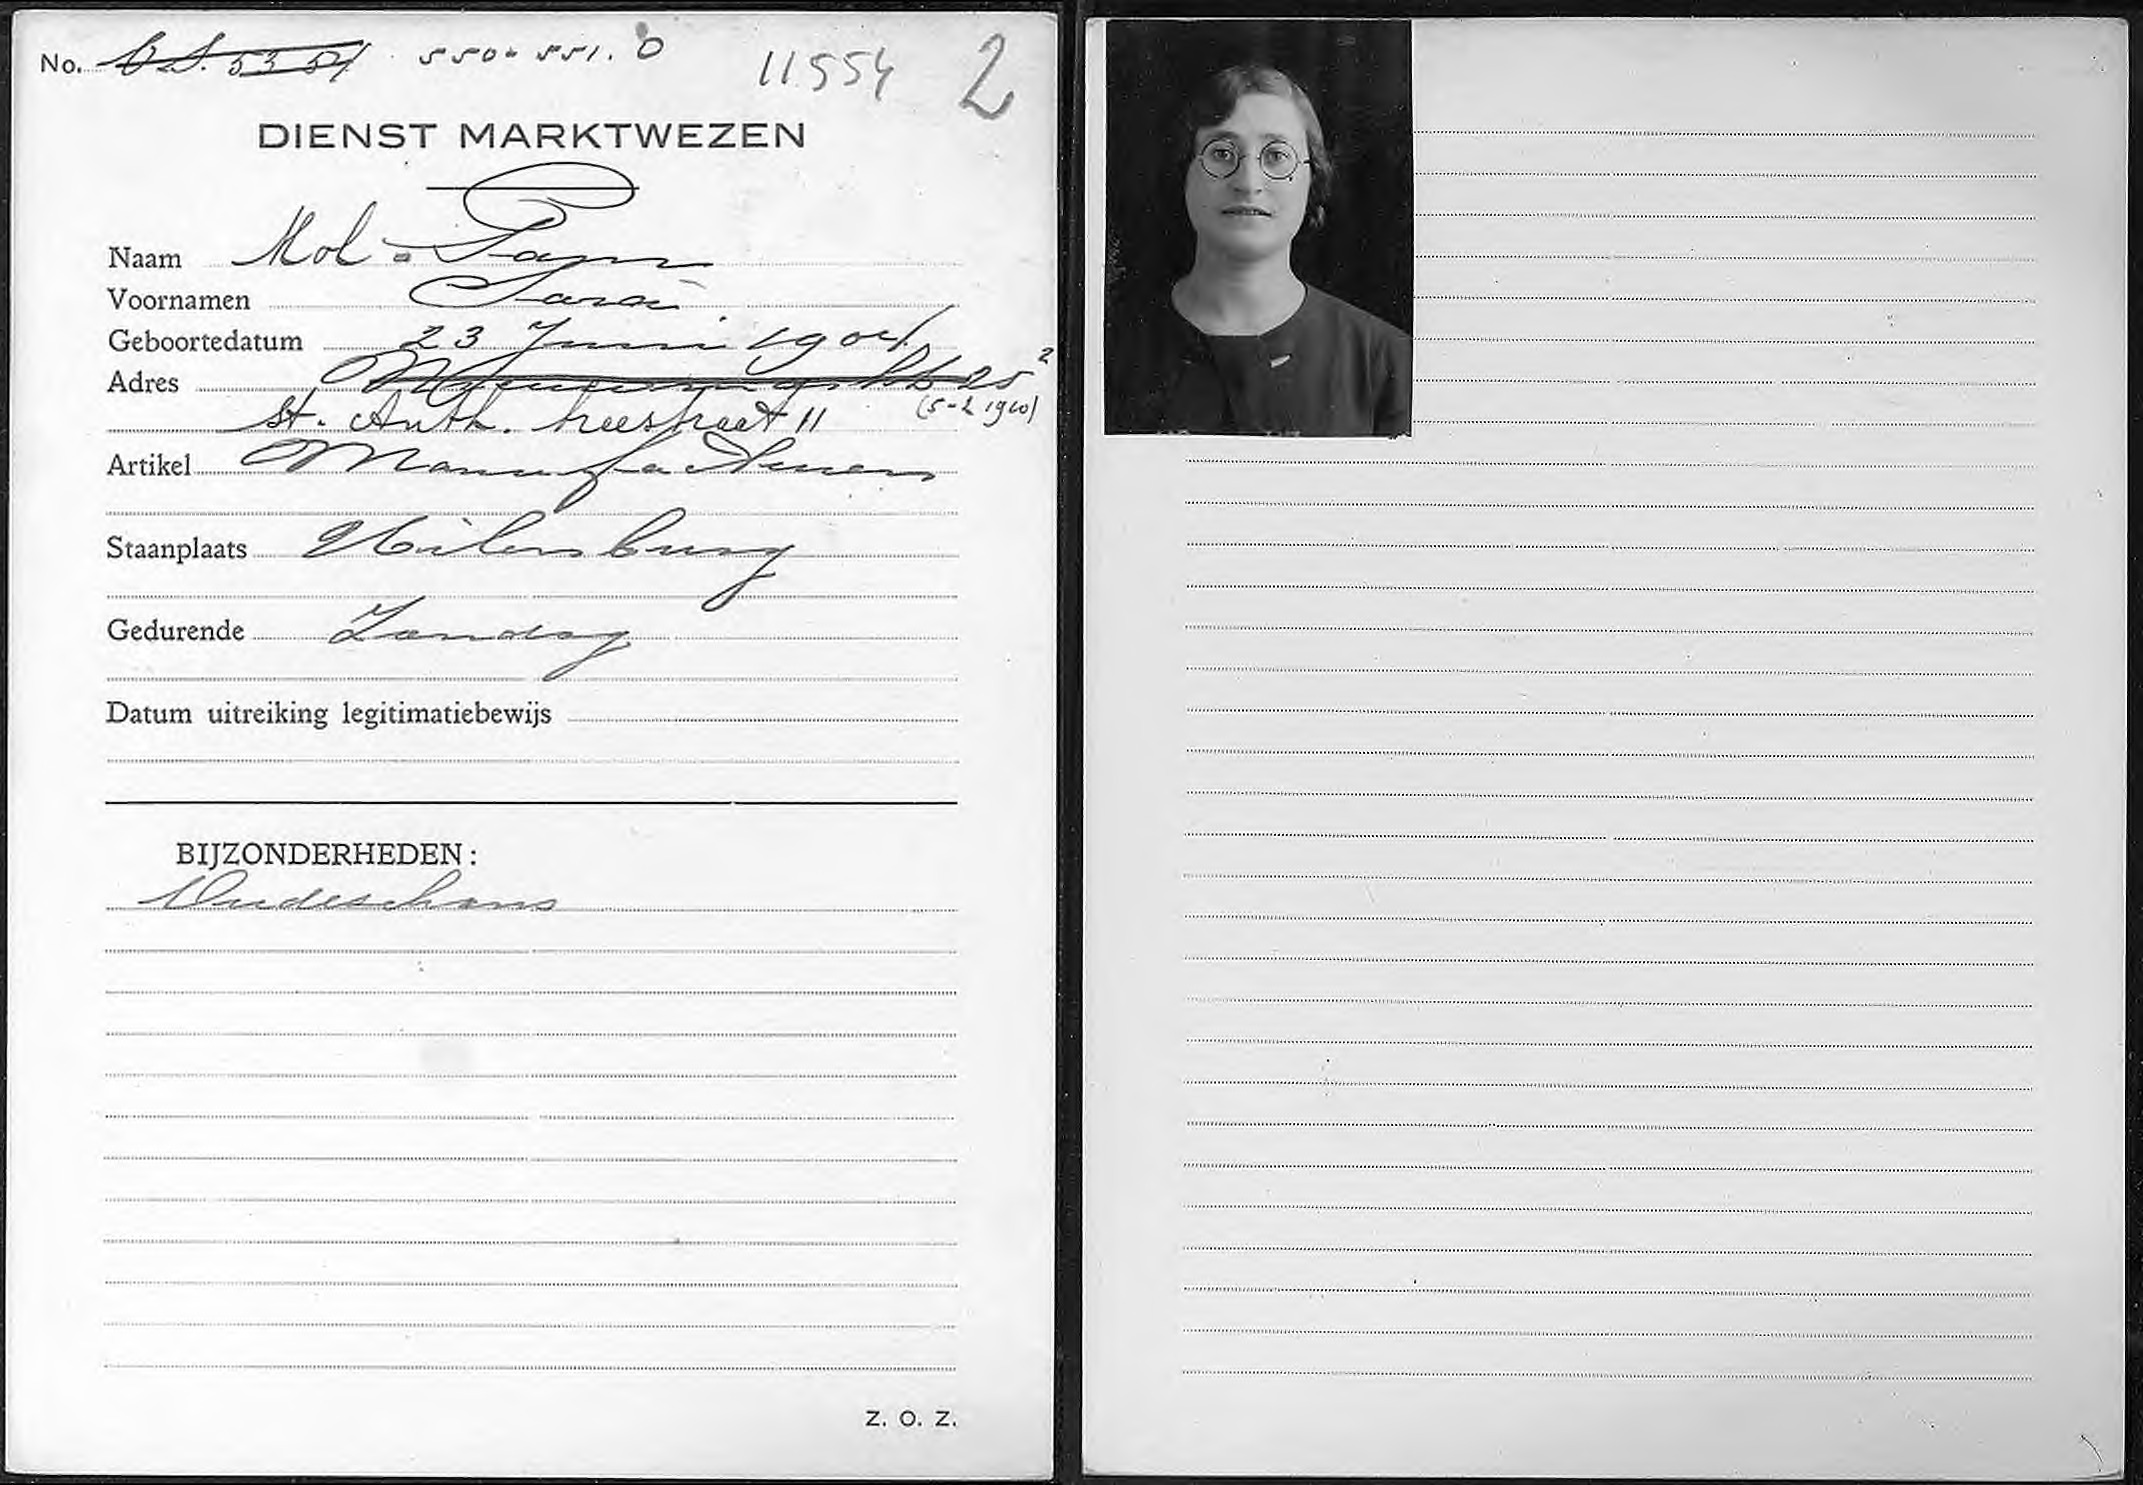 No. O.S. 53 54 550-551. O 11554 2
DIENST MARKTWEZEN
Naam Mol = Papn
Voornamen Sara
Geboortedatum 23 Juni 1904
Adres 25 2
(5-2 1940)
St. Anth. breestraat 11
Artikel Manufacturen
Staanplaats Uilenburg
Gedurende Zondag
Datum uitreiking legitimatiebewijs
BIJZONDERHEDEN:
Oudeschans
Z. O. Z.